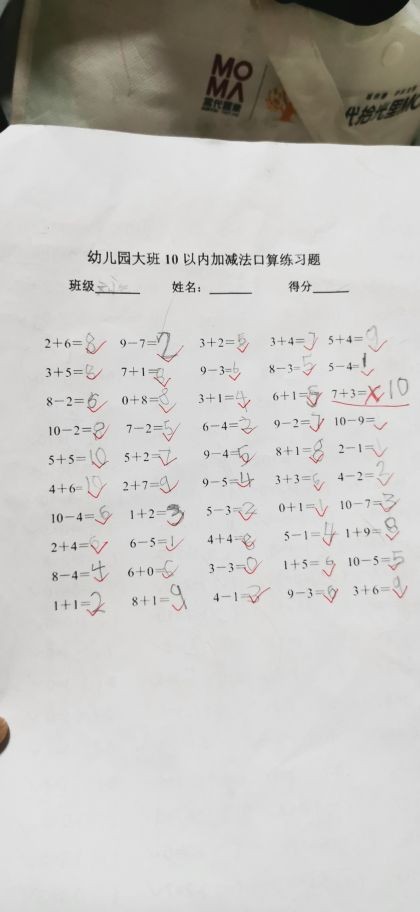 MO
MA
当代置業
幼儿园大班 10 以内加减法口算练习题
班级 姓名： 得分
2+6=8 9-7=2 3+2=5 3+4=7 5+4=9
3+5=8 7+1=8 9-3=6 8-3=5 5-4=1
8-2=6 0+8=8 3+1=4 6+1= 7+3=×10
10-2=8 7-2=5 6-4=2 9-2=7 10-9=
5+5=10 5+2=7 9-4=5 8+1=8 2-1=1
4+6=10 2+7=9 9-5=4 3+3=6 4-2=2
10-4=6 1+2=3 5-3=2 0+1=1 10-7=3
2+4=6 6-5=1 4+4=8 5-1=4 1+9=8
8-4=4 6+0=6 3-3=0 1+5=6 10-5=5
1+1=2 8+1=9 4-1=3 9-3=6 3+6=9